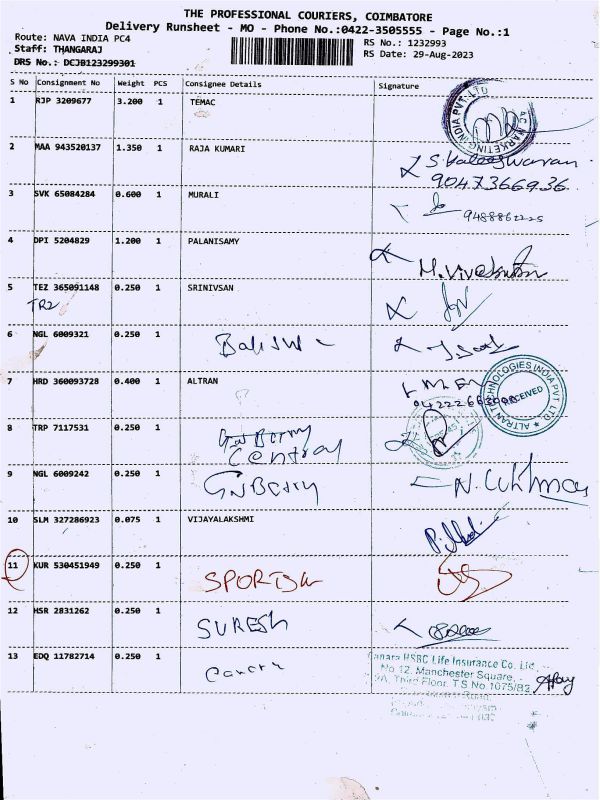 THE PROFESSIONAL COURIERS, COIMBATORE
Delivery Runsheet - MO - Phone No.:0422-3505555 - Page No.:1
Route: NAVA INDIA PC4
RS No.: 1232993
Staff: THANGARAJ
RS Date: 29-Aug-2023
DRS No.: DCJB123299301
S No Consignment No Weight PCS Consignee Details Signature
1 RJP 3209677 3.200 1 TEMAC
2 MAA 943520137 1.350 1 RAJA KUMARI
9047366936
3 SVK 65084284 0.600 1 MURALI
9488862225
4 DPI 5204829 1.200 1 PALANISAMY
5 TEZ 365091148 0.250 1 SRINIVSAN
TR2
6 NGL 6009321 0.250 1
7 HRD 360093728 0.400 1 ALTRAN
ALTRAN TECHNOLOGIES INDIA PVT LTD
RECEIVED
8 TRP 7117531 0.250 1
Central
9 NGL 6009242 0.250 1
10 SLM 327286923 0.075 1 VIJAYALAKSHMI
11 KUR 530451949 0.250 1
12 HSR 2831262 0.250 1 SURESH
13 EDQ 11782714 0.250 1
Canara HSBC Life Insurance Co. Ltd.
No 12, Manchester Square,
Third Floor, T.S No.1075/B2